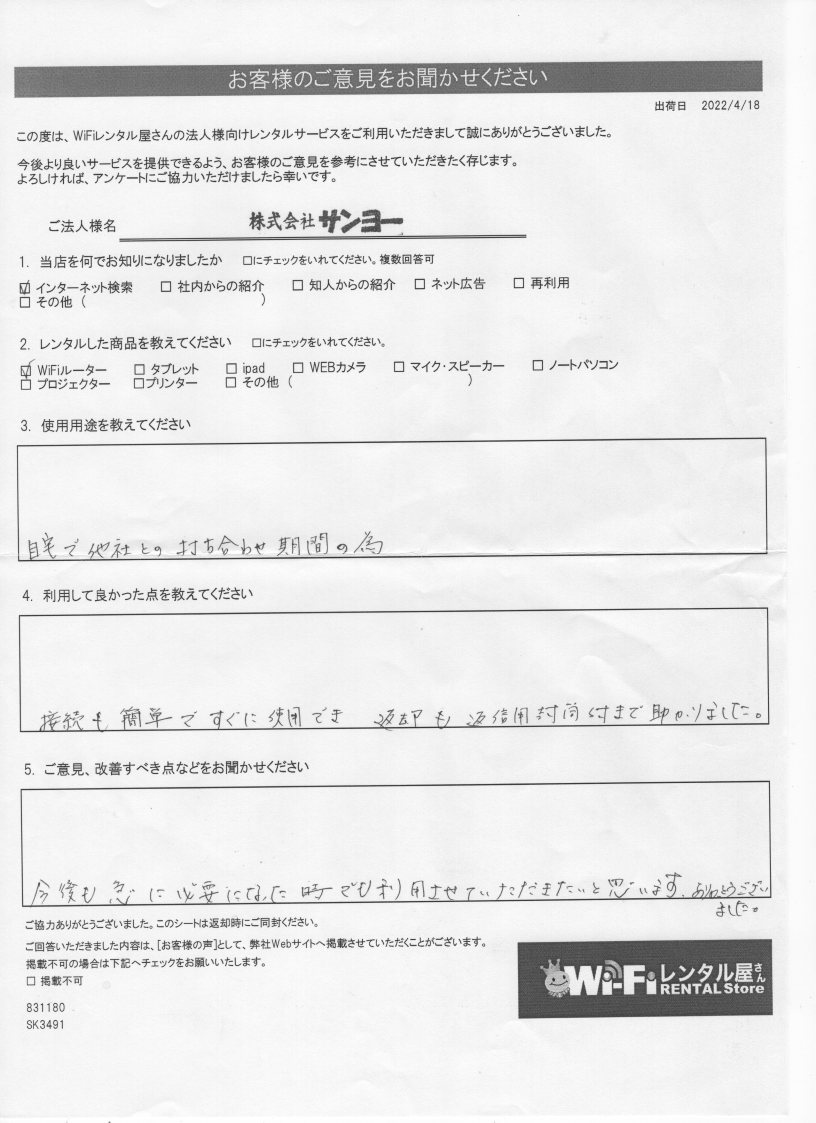 お客様のご意見をお聞かせください
出荷日 2022/4/18
この度は、WiFiレンタル屋さんの法人様向けレンタルサービスをご利用いただきまして誠にありがとうございました。
今後より良いサービスを提供できるよう、お客様のご意見を参考にさせていただきたく存じます。
よろしければ、アンケートにご協力いただけましたら幸いです。
ご法人様名 株式会社サンヨー
1. 当店を何でお知りになりましたか □にチェックをいれてください。複数回答可
☑ インターネット検索 □ 社内からの紹介 □ 知人からの紹介 □ ネット広告 □ 再利用
□ その他 ( )
2. レンタルした商品を教えてください □にチェックをいれてください。
☑ WiFiルーター □ タブレット □ ipad □ WEBカメラ □ マイク・スピーカー □ ノートパソコン
□ プロジェクター □プリンター □ その他 ( )
3. 使用用途を教えてください
自宅で他社との打ち合わせ期間の為
4. 利用して良かった点を教えてください
接続も簡単ですぐに使用でき 返却も返信用封筒付まで助かりました。
5. ご意見、改善すべき点などをお聞かせください
今後も急に必要になった時でも利用させていただきたいと思います。ありがとうござい
ました。
ご協力ありがとうございました。このシートは返却時にご同封ください。
ご回答いただきました内容は、[お客様の声]として、弊社Webサイトへ掲載させていただくことがございます。
掲載不可の場合は下記へチェックをお願いいたします。
□ 掲載不可
831180
SK3491
Wi-Fiレンタル屋さん
RENTAL Store